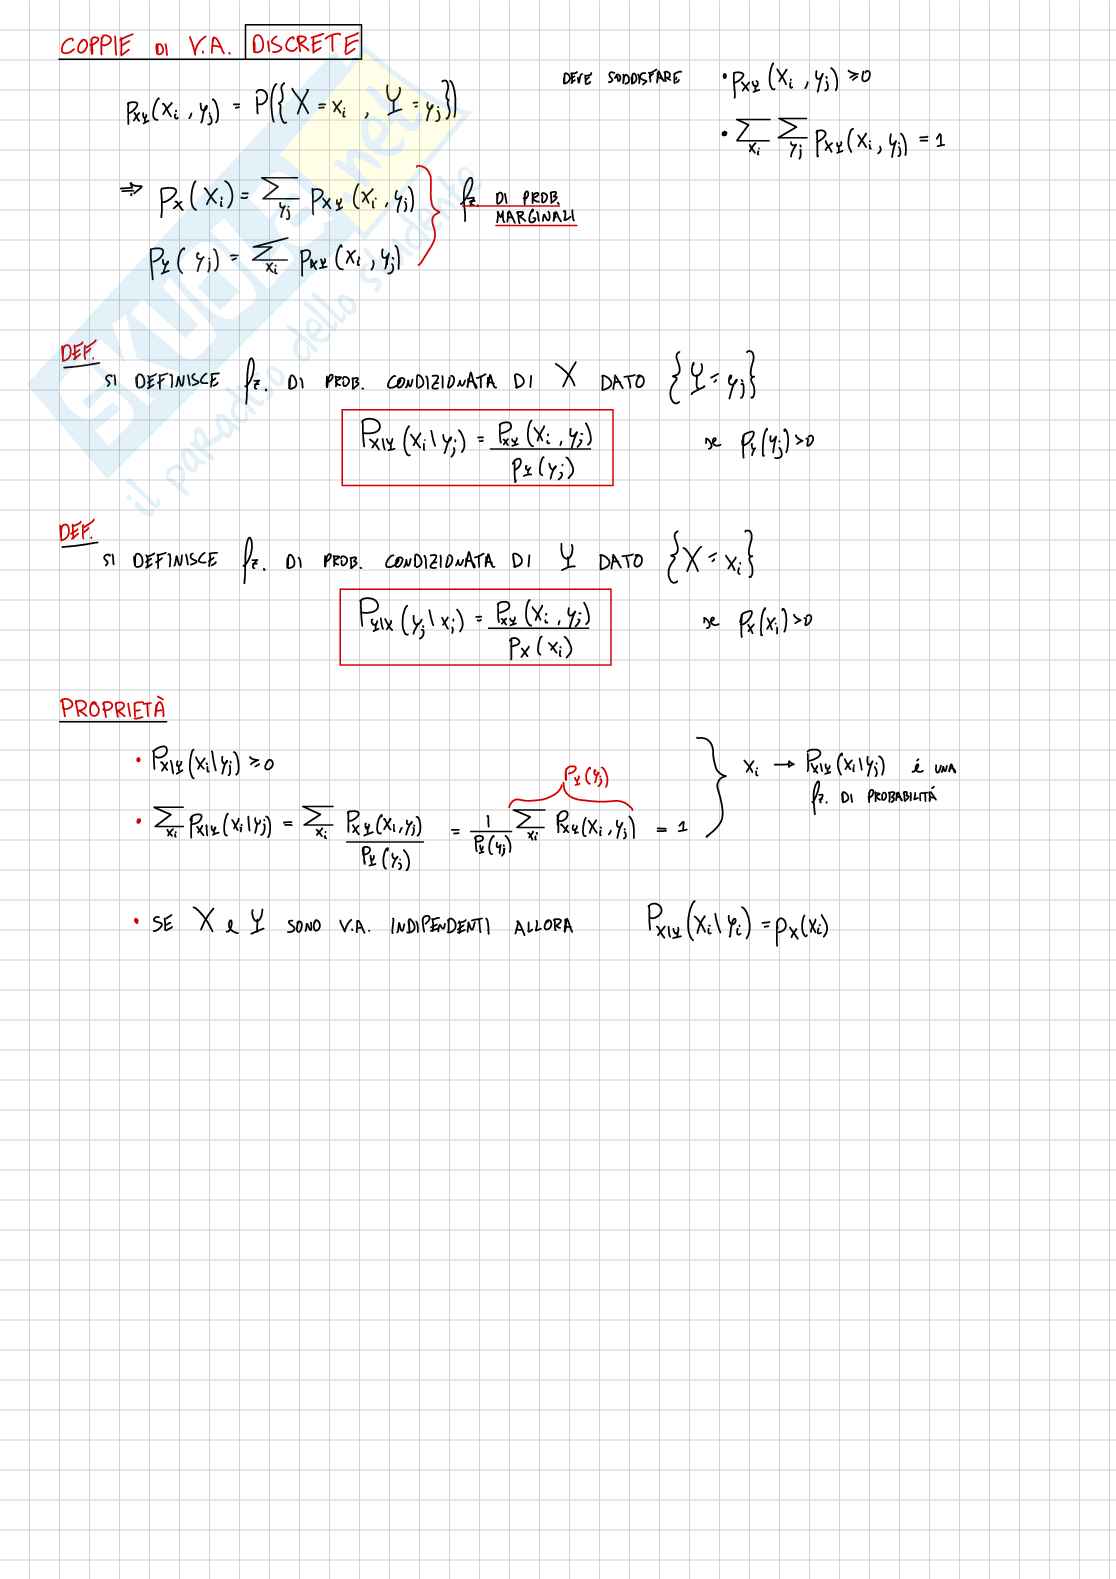 COPPIE DI V.A. DISCRETE
P_XY(x_i, y_j) = P({X = x_i, Y = y_j})
DEVE SODDISFARE
• P_XY(x_i, y_j) ≥ 0
• Σ_{x_i} Σ_{y_j} P_XY(x_i, y_j) = 1
⇒ P_X(x_i) = Σ_{y_j} P_XY(x_i, y_j)
P_Y(y_j) = Σ_{x_i} P_XY(x_i, y_j)
fz. DI PROB.
MARGINALI
DEF.
SI DEFINISCE fz. DI PROB. CONDIZIONATA DI X DATO {Y = y_j}
P_X|Y(x_i | y_j) = P_XY(x_i, y_j) / P_Y(y_j) se P_Y(y_j) > 0
DEF.
SI DEFINISCE fz. DI PROB. CONDIZIONATA DI Y DATO {X = x_i}
P_Y|X(y_j | x_i) = P_XY(x_i, y_j) / P_X(x_i) se P_X(x_i) > 0
PROPRIETÀ
• P_X|Y(x_i | y_j) ≥ 0
P_Y(y_j)
• Σ_{x_i} P_X|Y(x_i | y_j) = Σ_{x_i} P_XY(x_i, y_j) / P_Y(y_j) = 1 / P_Y(y_j) Σ_{x_i} P_XY(x_i, y_j) = 1
x_i → P_X|Y(x_i | y_j) é UNA
fz. DI PROBABILITÁ
• SE X e Y SONO V.A. INDIPENDENTI ALLORA P_X|Y(x_i | y_i) = P_X(x_i)
SKUOLA.net
il paradiso dello studente